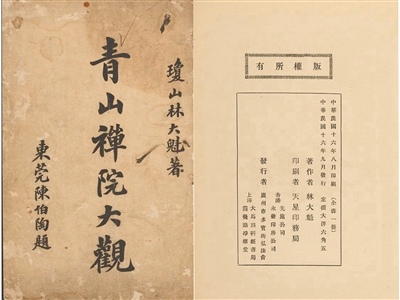 瓊山林大魁著
青山禪院大觀
東莞陳伯陶題
版權所有
中華民國十六年八月印刷（全書一冊）
中華民國十六年九月發行 定價大洋六角五
著作者 林大魁
印刷者 天星印務局
發行者
香港 先施公司
廣州市多寶街弘法會
上海